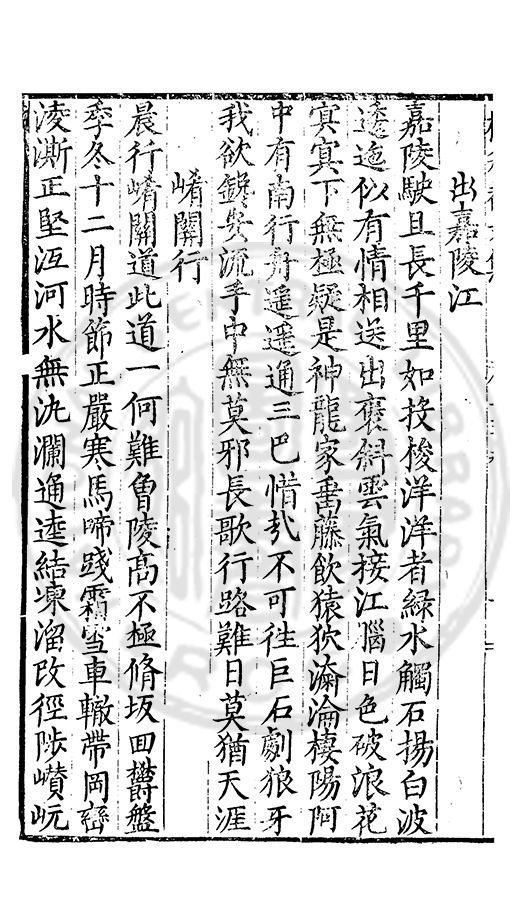 出嘉陵江
嘉陵駛且長千里如投梭洋洋者綠水觸石揚白波
逶迤似有情相送出褒斜雲氣接江腦日色破浪花
寘寘下無極疑是神龍家垂藤飲猿狖淪棲陽阿
中有南行舟遥遥通三巴惜哉不可徃巨石劇狼牙
我欲鑱其流手中無莫邪長歌行路難日莫猶天涯
嶠關行
晨行嶠關道此道一何難魯陵高不極脩坂回欝盤
季冬十二月時節正嚴寒馬啼踐霜雪車轍帶岡巒
淩澌正堅沍河水無汍瀾通逵結凍溜改徑陟巑岏